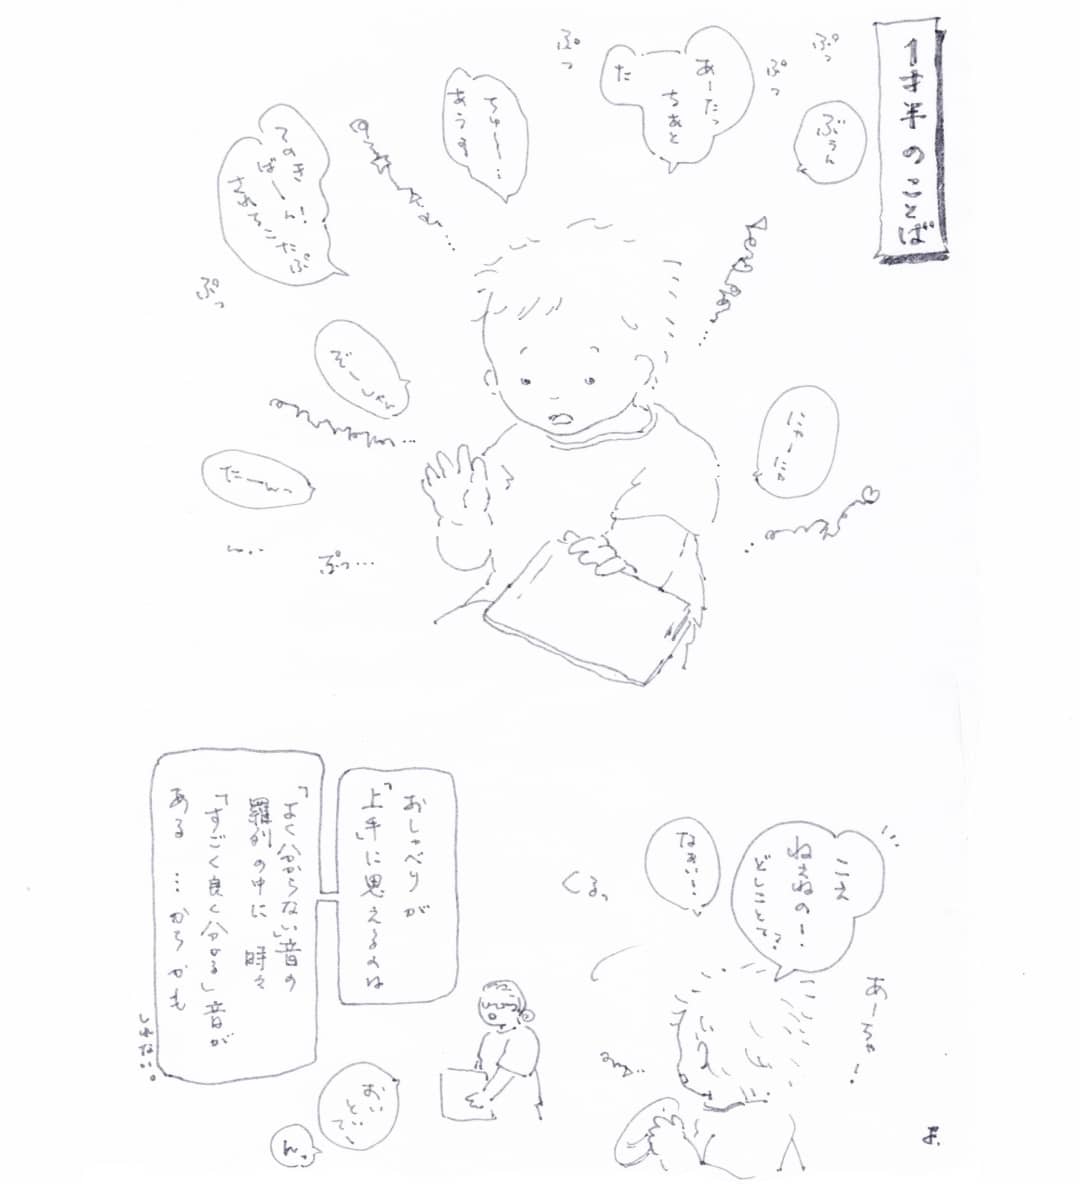 1才半のことば
ぷっ
ぷっ
ぶぅん
ぷっ
あーたっ
ちあと
た
ちゅ〜…
あうま
てのき
ばーん!
ぷっ
ぞーしゃん
だーんっ
ん..
ぷっ…
にゃーにゃ
こえ
ねぇねのー.
どしことて?
なぁい…
くるっ
あーちゃー
おしゃべりが
「上手」に思えるのは
「よく分からない」音の
羅列の中に 時々
「すごく良く分かる」音が
ある … からかも
しれない。
おいといで
んっ